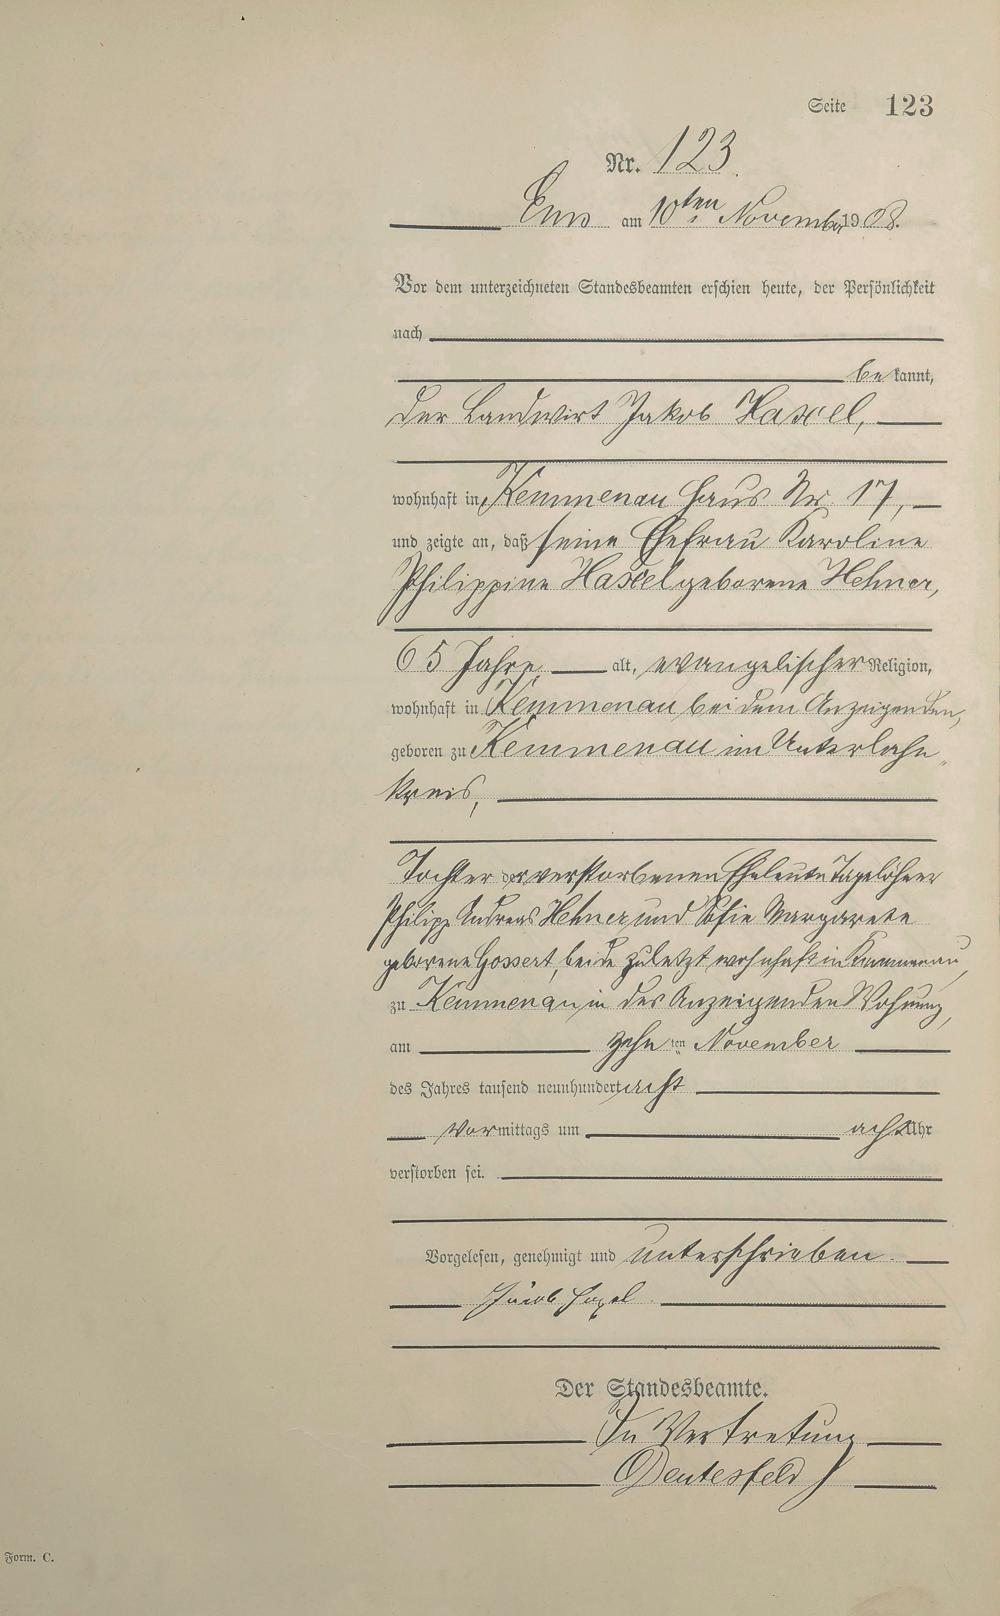 Seite 123
Nr. 123.
Ems am 10ten November 1908.
Vor dem unterzeichneten Standesbeamten erschien heute, der Persönlichkeit
nach
bekannt,
der Landwirt Jakob Haxel,
wohnhaft in Kemmenau Haus Nr. 17,
und zeigte an, daß seine Ehefrau Karoline
Philippine Haxel geborene Hehner,
65 Jahre alt, evangelischer Religion,
wohnhaft in Kemmenau bei dem Anzeigenden,
geboren zu Kemmenau im Unterlahn-
kreis,
Tochter der verstorbenen Eheleute Tagelöhner
Philipp Andreas Hehner und Sofie Margarete
geborene Gossert, beide zuletzt wohnhaft in Kemmenau,
zu Kemmenau in des Anzeigenden Wohnung,
am zehnten November
des Jahres tausend neunhundert acht
Vormittags um acht Uhr
verstorben sei.
Vorgelesen, genehmigt und unterschrieben.
Jacob Haxel.
Der Standesbeamte.
In Vertretung
Deutesfeld
Form. C.